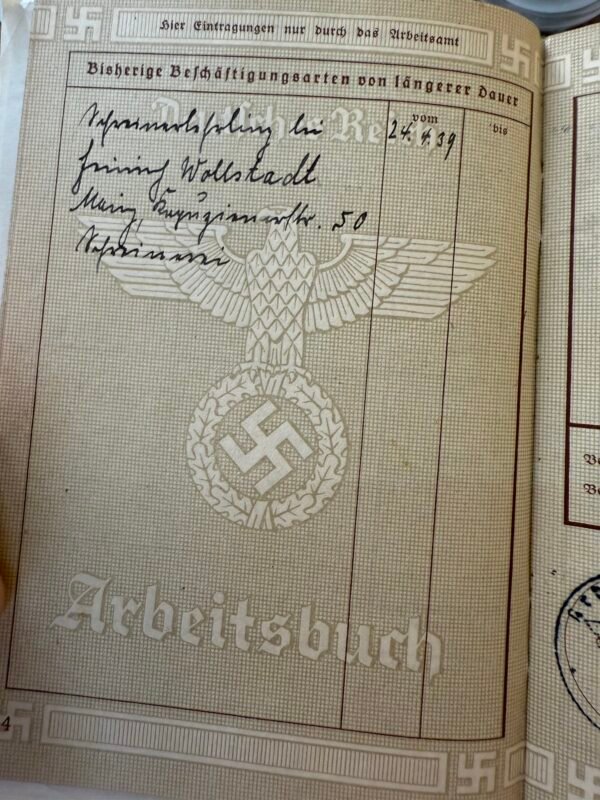 Hier Eintragungen nur durch das Arbeitsamt
Bisherige Beschäftigungsarten von längerer Dauer
Deutsches Reich
vom
bis
Schreinerlehrling bei
24.4.39
Heinrich Wollstadt
Mainz, Kapuzienerstr. 50
Schreinerei
Arbeitsbuch
4